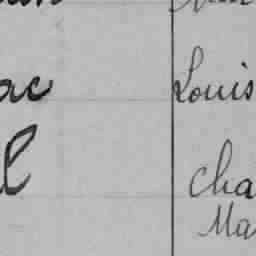 ac Louis
l cha
Ma